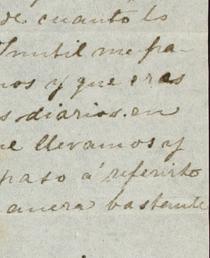 de cuanto lo
Inutil me pa-
mos y que eras
s diarios. en
ue llevamos y
paso á referirto
anera bastante